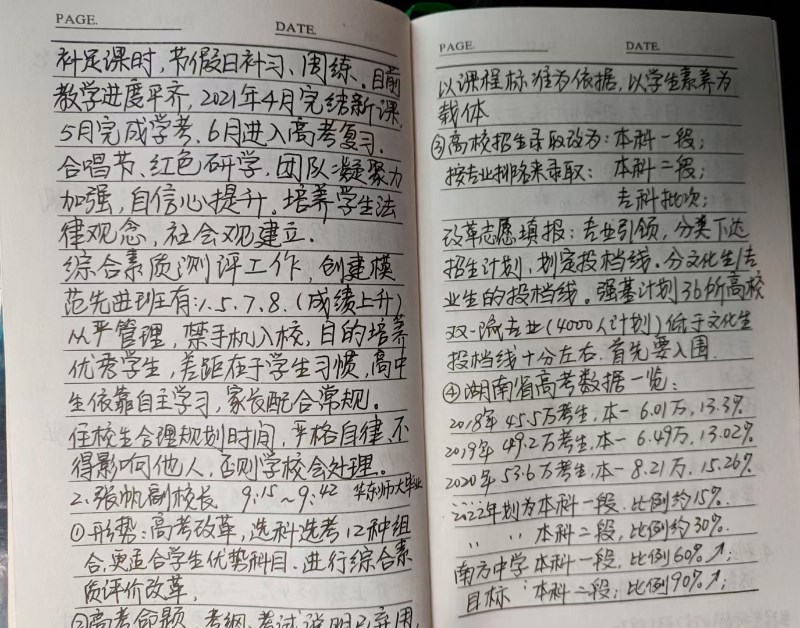 PAGE.
DATE.
补足课时,节假日补习、周练、目前
教学进度平齐,2021年4月完结新课,
5月完成学考,6月进入高考复习.
合唱节、红色研学,团队凝聚力
加强,自信心提升。培养学生法
律观念,社会观建立.
综合素质测评工作,创建模
范先进班有:1.5.7.8.(成绩上升)
从严管理,禁手机入校,目的培养
优秀学生,差距在于学生习惯,高中
生依靠自主学习,家长配合常规。
住校生合理规划时间,严格自律,不
得影响他人,否则学校会处理。
2.张帆副校长 9:15~9:42 华东师大毕业
①形势:高考改革,选科选考12种组
合,更适合学生优势科目.进行综合素
质评价改革,
②高考命题,考纲、考试说明已弃用,
PAGE.
DATE.
以课程标准为依据,以学生素养为
载体
③高校招生录取改为:本科一段;
按专业排名来录取: 本科二段;
专科批次;
改革志愿填报:专业引领,分类下达
招生计划,划定投档线.分文化生/专
业生的投档线。强基计划36所高校
双一流专业(4000人计划)低于文化生
投档线十分左右.首先要入围.
④湖南省高考数据一览:
2018年 45.5万考生,本一 6.01万,13.3%
2019年 49.2万考生,本一 6.49万,13.02%
2020年 53.6万考生,本一 8.21万,15.26%
2022年划为本科一段.比例约15%.
〃 〃 本科二段,比例约30%.
南方中学本科一段,比例60%↑;
目标:本科二段;比例90%↑;